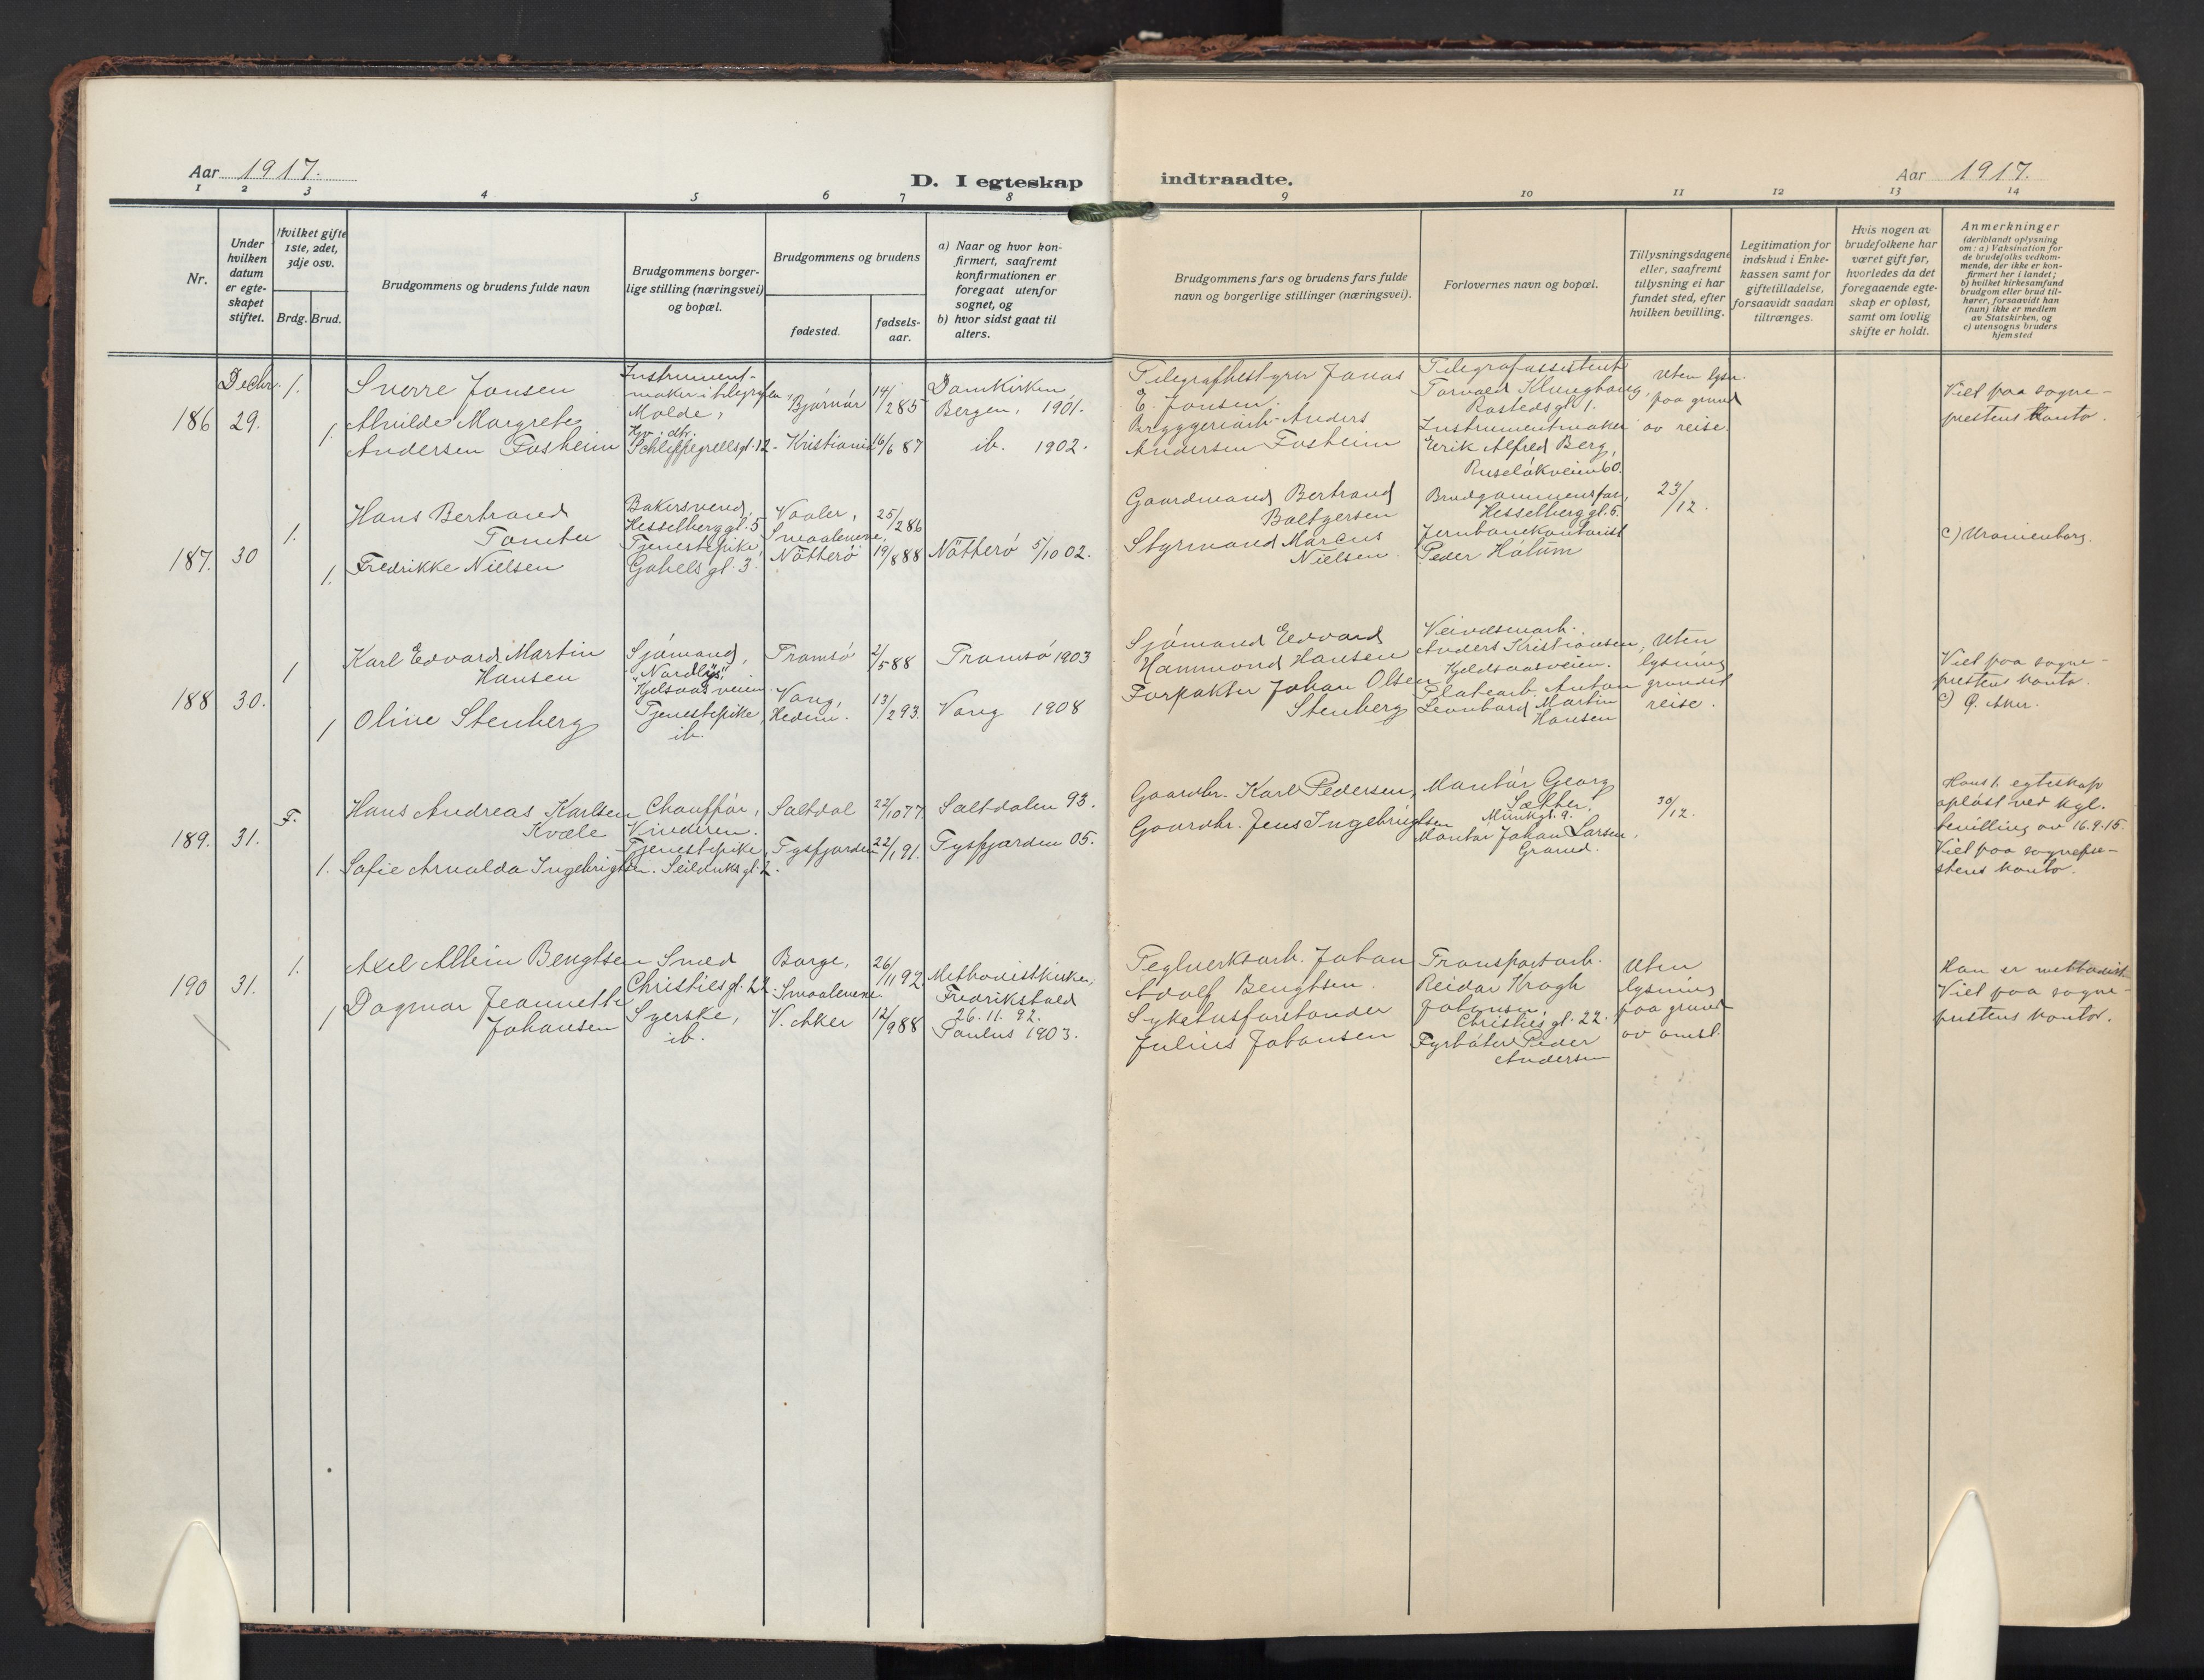 Aar 1917.
D. I egteskap
indtraadte.
Aar 1917.
1 2 3 4 5 6 7 8 9 10 11 12 13 14
Nr.
Under hvilken datum er egte-skapet stiftet.
Hvilket gifte 1ste, 2det, 3dje osv.
Brdg. Brud.
Brudgommens og brudens fulde navn
Brudgommens borger-
lige stilling (næringsvei)
og bopæl.
Brudgommens og brudens
fødested.
fødsels-
aar.
a) Naar og hvor kon-
firmert, saafremt
konfirmationen er
foregaat utenfor
sognet, og
b) hvor sidst gaat til
alters.
Brudgommens fars og brudens fars fulde
navn og borgerlige stillinger (næringsvei).
Forlovernes navn og bopæl.
Tillysningsdagene
eller, saafremt
tillysning ei har
fundet sted, efter
hvilken bevilling.
Legitimation for
indskud i Enke-
kassen samt for
giftetilladelse,
forsaavidt saadan
tiltrænges.
Hvis nogen av
brudefolkene har
været gift før,
hvorledes da det
foregaaende egte-
skap er opløst,
samt om lovlig
skifte er holdt.
Anmerkninger
(deriblandt oplysning
om: a) Vaksination for
de brudefolks vedkom-
mende, der ikke er kon-
firmert her i landet;
b) hvilket kirkesamfund
brudgom eller brud til-
hører, forsaavidt han
(hun) ikke er medlem
av Statskirken, og
c) utensogns bruders
hjemsted
Decbr.
186 29.
1.
1.
Sverre Jansen
Alvilde Margrete
Andersen Fosheim
Instrument-
maker i telegrafen,
Molde,
Schleppegrellsgt. 12
Bjørnør
Kristiania
14/2 85
16/6 87
Domkirken
Bergen, 1901.
ib. 1902.
Telegrafbestyrer Jonas
E. Jansen.
Bryggeriarb. Anders
Andersen Fosheim
Telegrafassistent
Torvald Klungbang,
Rostedsgt. 1.
Instrumentmaker
Erik Alfred Berg,
Ruseløkveien 60.
Uten lysn.
paa grund
av reise.
Viet paa sogne-
prestens kontor.
187. 30
1.
1.
Hans Bertrand
Tomter
Fredrikke Nielsen
Bakersvend,
Hesselberggt. 5
Tjenestepike,
Gabels gt. 3.
Vaaler,
Smaalenene,
Nøtterø
25/2 86
19/8 88
Nøtterø 5/10 02.
Gaardmand Bertrand
Baltzersen
Styrmand Marcus
Nielsen.
Brudgommens far,
Hesselberggt. 5.
Jernbanekontorist
Peder Holum
23/12.
c) Uranienborg.
188 30.
1
1
Karl Edvard Martin
Hansen
Oline Stenberg
Sjømand,
"Nordlys",
Kjelsaasveien.
Tjenestepike,
ib.
Tromsø
Vang,
Hedem.
2/5 88
13/2 93.
Tromsø 1903
Vang 1908
Sjømand Edvard
Hammond Hansen
Forpakter Johan Olsen
Stenberg
Veivæsenarb.
Anders Kristiansen,
Kjeldsaasveien.
Platearb. Anton
Leonhard Martin
Hansen
Uten
lysning
grundet
reise.
Viet paa sogne-
prestens kontor.
c) Ø. Aker.
189. 31.
F.
1.
Hans Andreas Karlsen
Kvæle
Sofie Arnalda Ingebrigtsen.
Chauffør,
Vinderen.
Tjenestepike,
Seilduksgt. 2.
Saltdal
Tysfjorden
22/10 77
22/1 91.
Saltdalen 93.
Tysfjorden 05.
Gaardbr. Karl Pedersen,
Gaardbr. Jens Ingebrigtsen
Montør Georg
Sæther,
Munkgt. 9.
Montør Johan Larsen,
Grorud.
30/12.
Hans 1. egteskap
opløst ved kgl.
bevilling av 16.9.15.
Viet paa sognepre-
stens kontor.
190 31.
1.
1
Axel Albin Bengtsen
Dagmar Jeannette
Johansen
Smed
Christiesgt. 22.
Syerske,
ib.
Borge,
Smaalenene.
V. Aker
26/11 92.
12/9 88
Methodistkirken,
Fredrikstad
26.11.92.
Paulus 1903.
Teglverksarb. Johan
Adolf Bengtsen.
Sykehusforstander
Julius Johansen
Transportarb.
Reidar Krogh
Johansen,
Christiesgt. 22.
Fyrbøter Peder
Andersen
Uten
lysning
paa grund
av omst.
Han er methodist
Viet paa sogne-
prestens kontor.